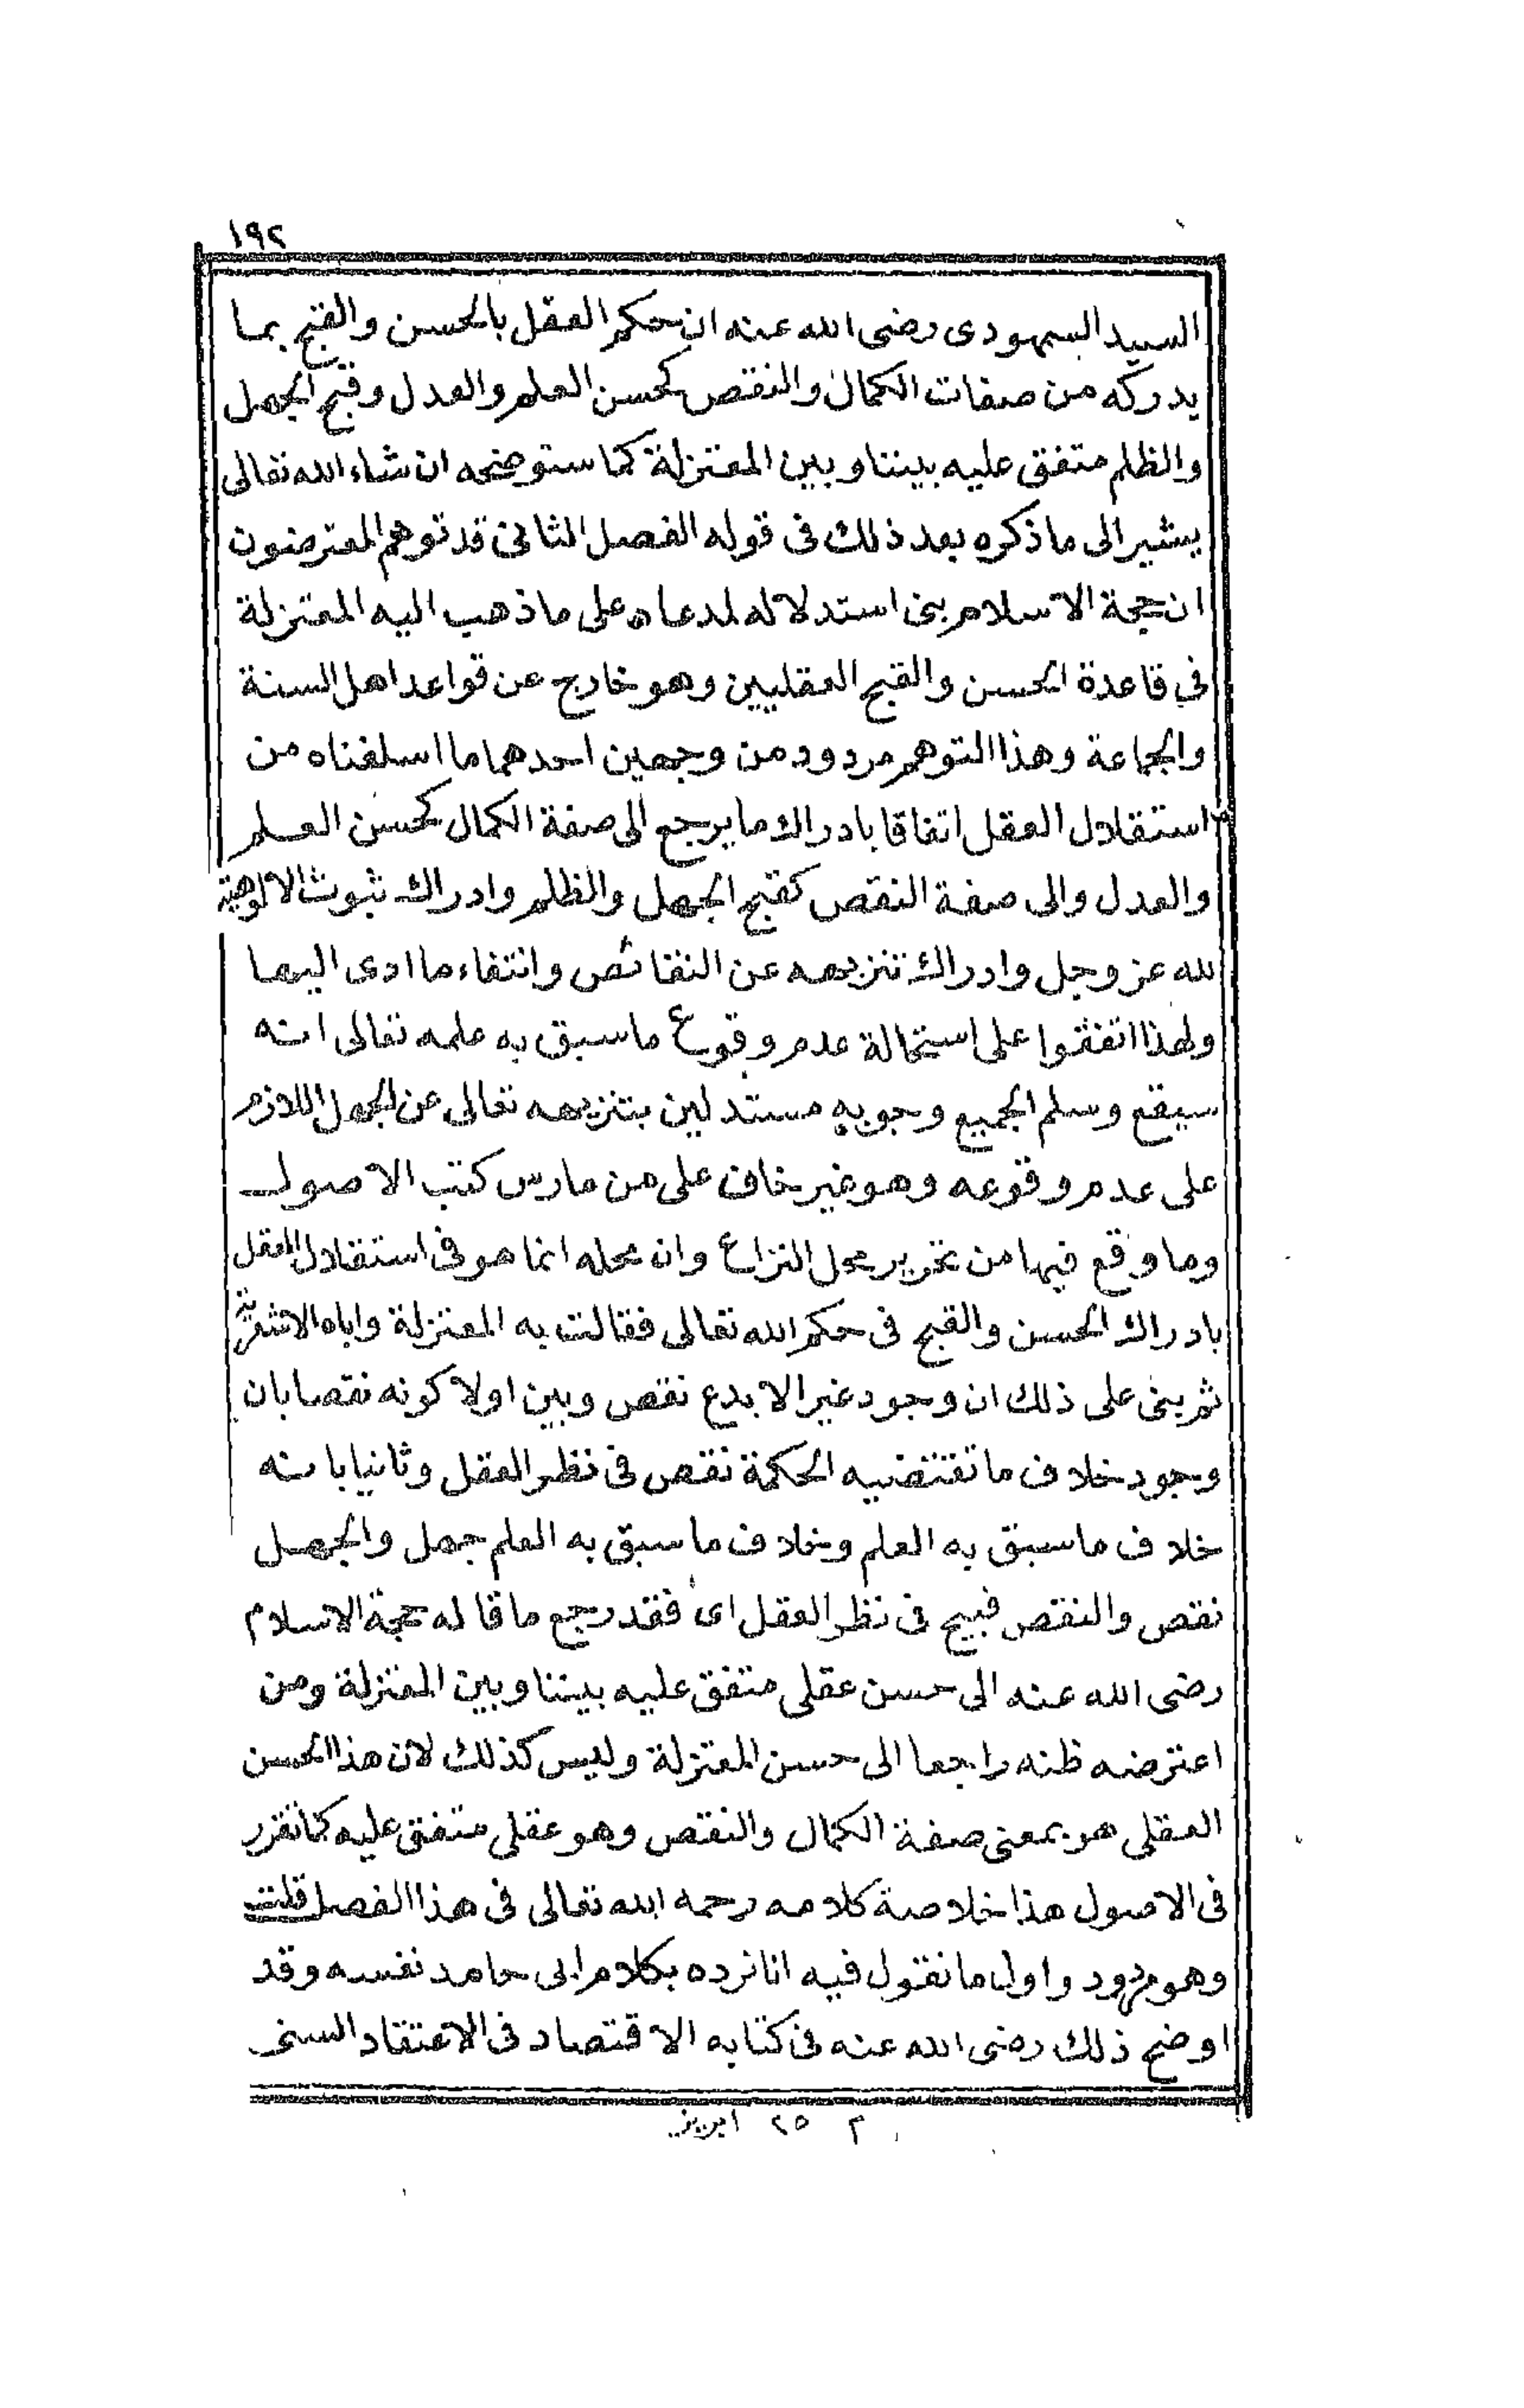 ١٩٢
السيد السمهودى رضى الله عنه ان حكم العقل بالحسن والقبح بما
يدركه من صفات الكمال والنقص كحسن العلم والعدل وقبح الجهل
والظلم متفق عليه بيننا وبين المعتزلة كما ستوضحه ان شاء الله تعالى
يشير الى ما ذكره بعد ذلك فى قوله الفصل الثانى قد توهم المعترضون
ان حجة الاسلام بنى استدلاله لمدعاه على ما ذهب اليه المعتزلة
في قاعدة الحسن والقبح العقليين وهو خارج عن قواعد اهل السنة
والجماعة وهذا التوهم مردود من وجهين احدهما ما اسلفناه من
استقلال العقل اتفاقا بادراك ما يرجع الى صفة الكمال كحسن العلم
والعدل والى صفة النقص كقبح الجهل والظلم وادراك ثبوت الالوهية
لله عز وجل وادراك تنزيهه عن النقائص وانتفاء ما ادى اليها
ولهذا اتفقوا على استحالة عدم وقوع ما سبق به علمه تعالى انه
سيقع وسلم الجميع وجوبه مستدلين بتنزيهه تعالى عن الجهل اللازم
على عدم وقوعه وهو غير خاف على من مارس كتب الاصول
وما وقع فيها من تحرير محل النزاع وان محله انما هو فى استقلال العقل
بادراك الحسن والقبح فى حكم الله تعالى فقالت به المعتزلة واباه الاشعرية
ثم بنى على ذلك ان وجود غير الابدع نقص وبين اولا كونه نقصا بان
وجود خلاف ما تقتضيه الحكمة نقص فى نظر العقل وثانيا بانه
خلاف ما سبق به العلم وخلاف ما سبق به العلم جهل والجهل
نقص والنقص قبيح فى نظر العقل اى فقد رجع ما قاله حجة الاسلام
رضى الله عنه الى حسن عقلى متفق عليه بيننا وبين المعتزلة ومن
اعترضه ظنه راجعا الى حسن المعتزلة وليس كذلك لان هذا الحسن
العقلى هو بمعنى صفة الكمال والنقص وهو عقلى متفق عليه كما تقرر
فى الاصول هذا خلاصة كلامه رحمه الله تعالى فى هذا الفصل قلت
وهو مردود واول ما نقول فيه انا نرده بكلام ابى حامد نفسه وقد
اوضح ذلك رضى الله عنه فى كتابه الاقتصاد فى الاعتقاد السنى
م ٢٥ ابريز